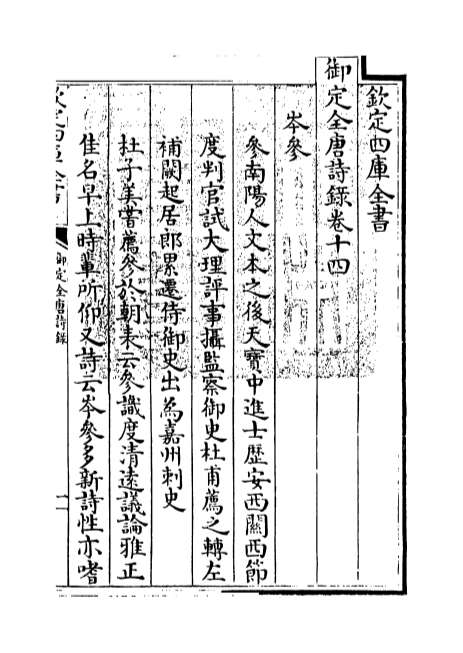 欽定四庫全書
御定全唐詩錄卷十四
岑參
參南陽人文本之後天寶中進士歷安西關西節
度判官試大理評事攝監察御史杜甫薦之轉左
補闕起居郎累遷侍御史出為嘉州刺史
杜子美嘗薦參於朝表云參識度清遠議論雅正
佳名早上時輩所仰又詩云岑參多新詩性亦嗜
欽定四庫全書
御定全唐詩錄